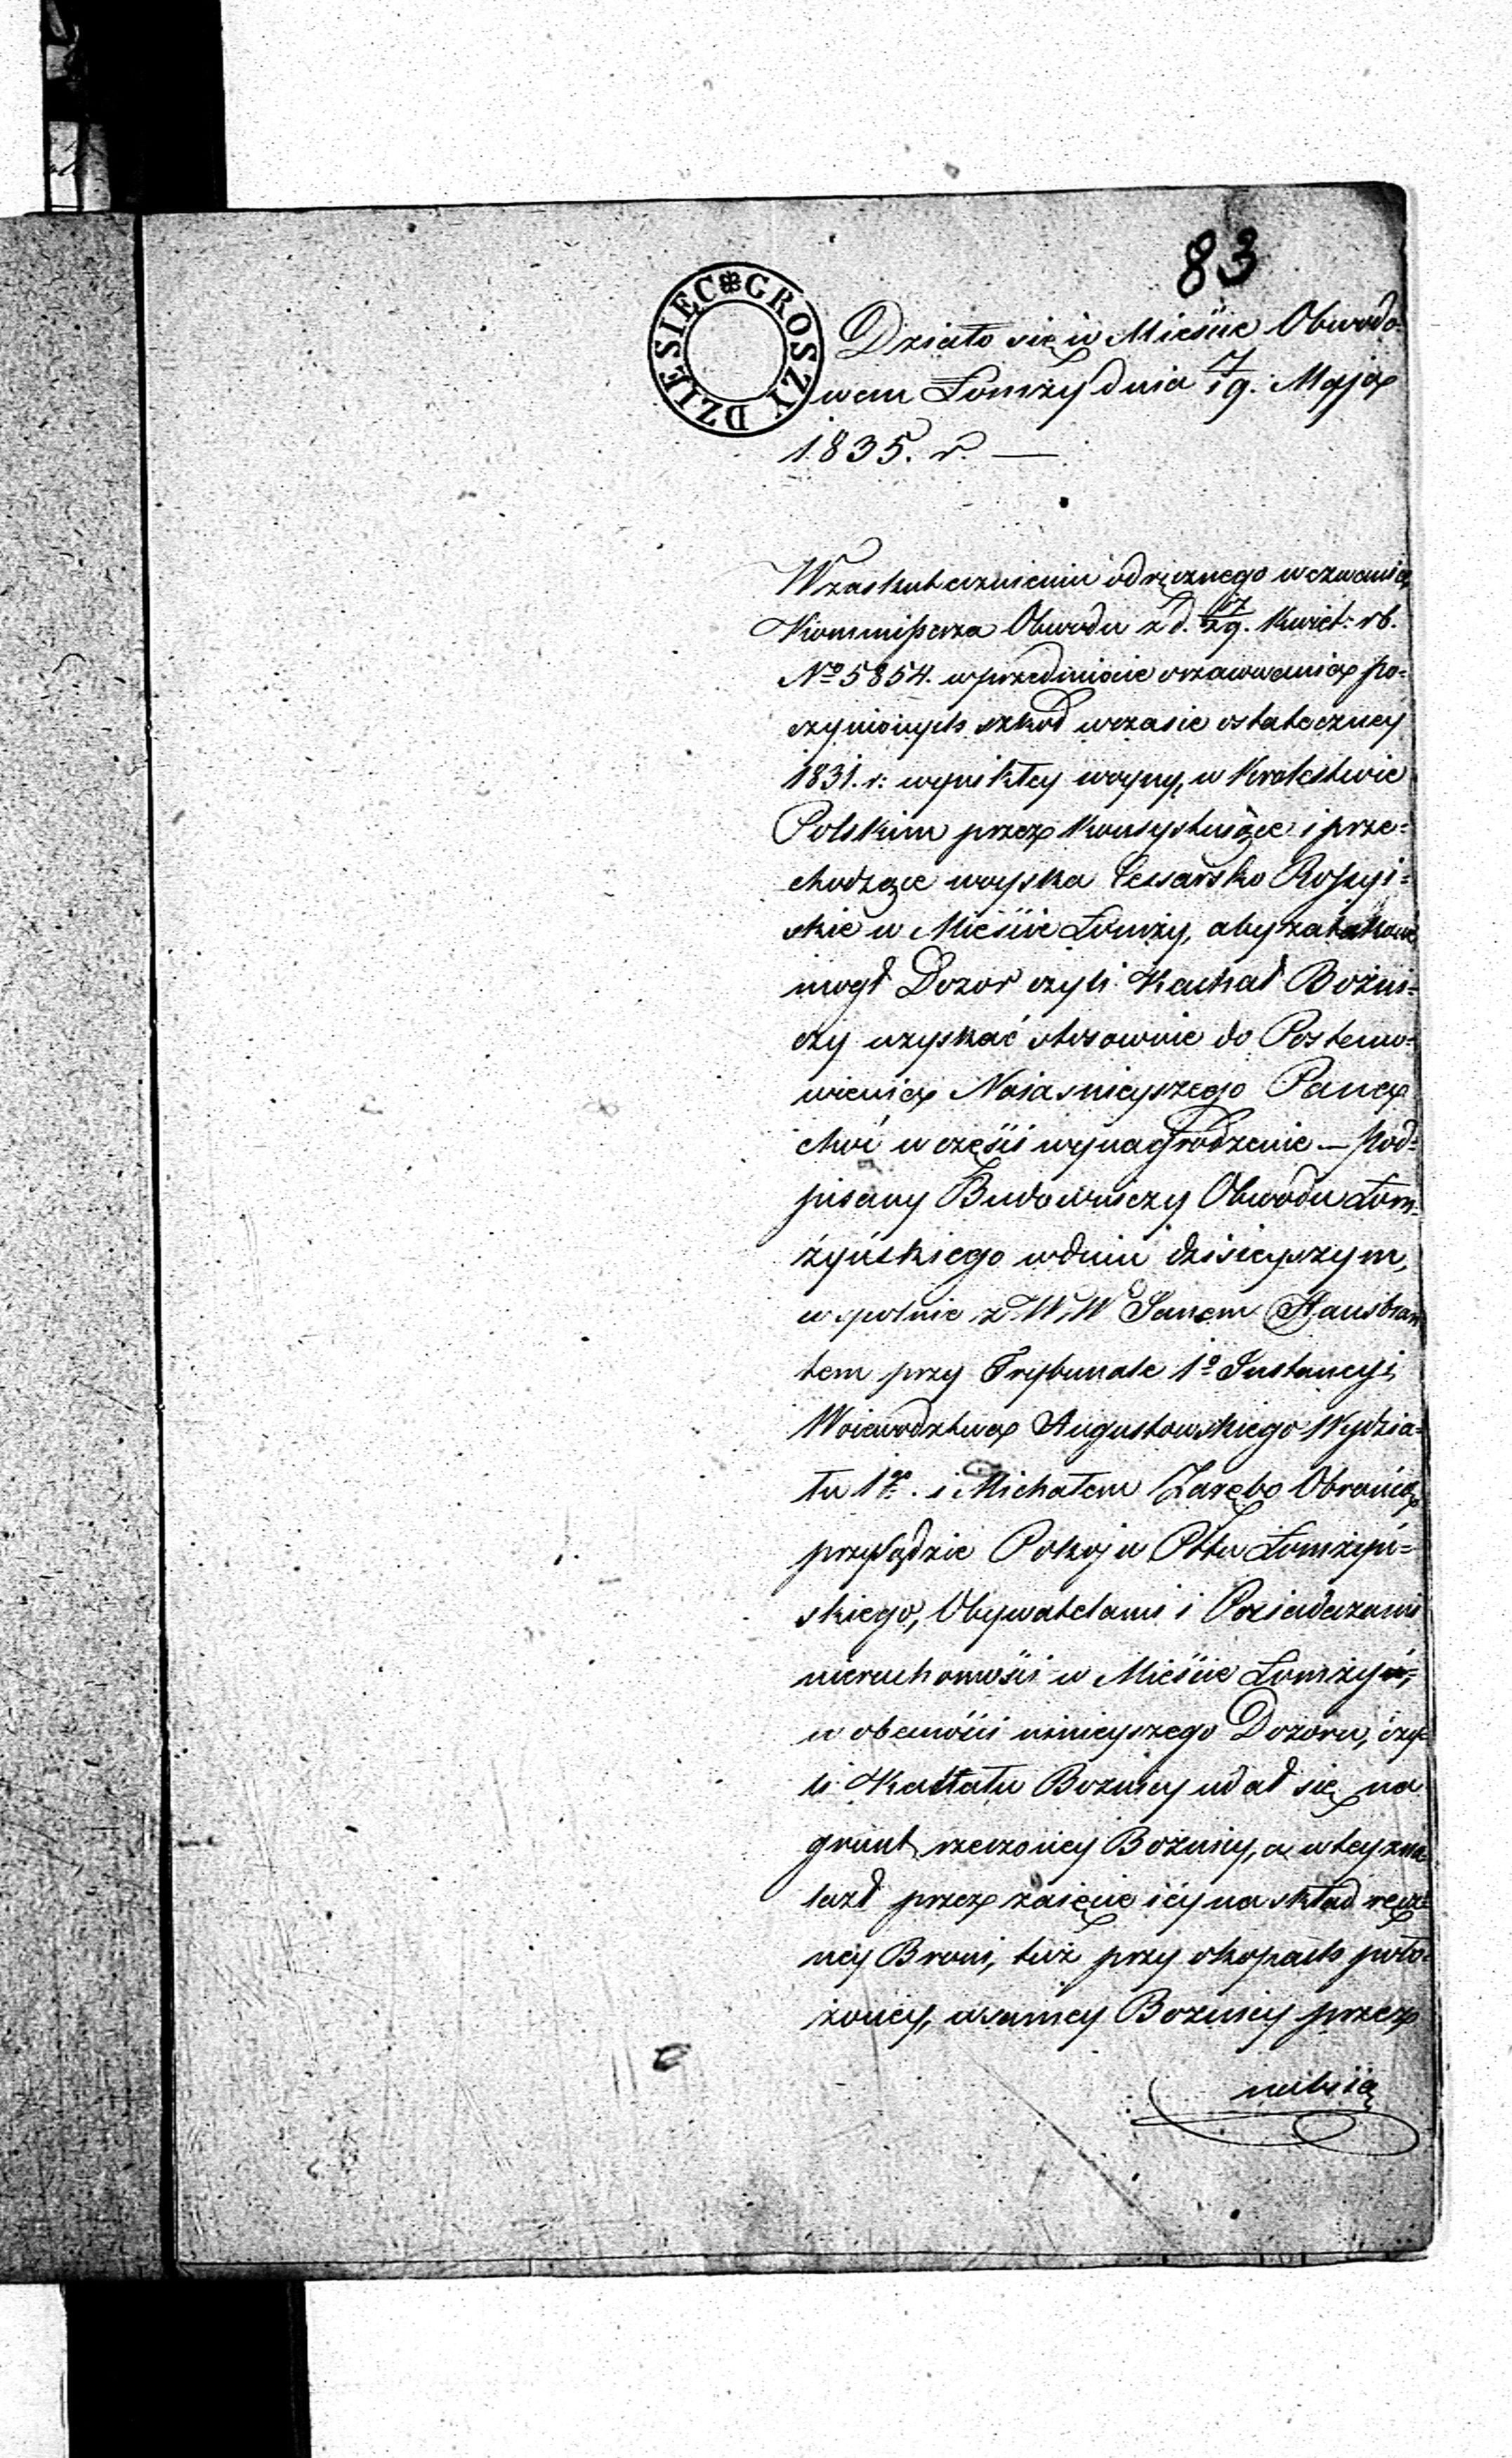 83
DZIESIĘC GROSZY
Działo się w Mieście Obwodo-
wem Łomży dnia 7/19. Maja
1835. r. —
W zaskutecznieniu odręcznego wezwania
Kommissarza Obwodu z d. 17/29. Kwiet: rb.
No 5854. w przedmiocie oszacowania po-
czynionych szkod w czasie ostateczney
1831. r: wynikłey woyny, w Krolestwie
Polskim przez konsystuiące i prze-
chodzące woyska Cesarsko Rossyi-
skie w Mieście Łomży, aby za takowe
mogł Dozor czyli Kachał Bożni-
czy uzyskać stosownie do Postano-
wienia Naiaśnieyszego Pana
choć w części wynagrodzenie — Pod-
pisany Budowniczy Obwodu Łom-
żyńskiego w dniu dzisieyszym,
wspolnie z W.W Janem Hausbran
tem przy Trybunale 1o Instancyi
Woiewodztwa Augustowskiego Wydzia-
łu 1go. i Michałem Zarębo Obrońcą
przy Sądzie Pokoju Pttu Łomżyń-
skiego, Obywatelami i Posiadaczami
nieruchomości w Mieście Łomży,
w obecności ninieyszego Dozoru, czy-
li Kachału Boznicy udał się na
grunt rzeczoney Boznicy, a w tey zna
lazł przez zaięcie iey na skład ręcz-
ney Broni, tuż przy okopach poło-
żoney, w samey Boznicy przez
nabicia